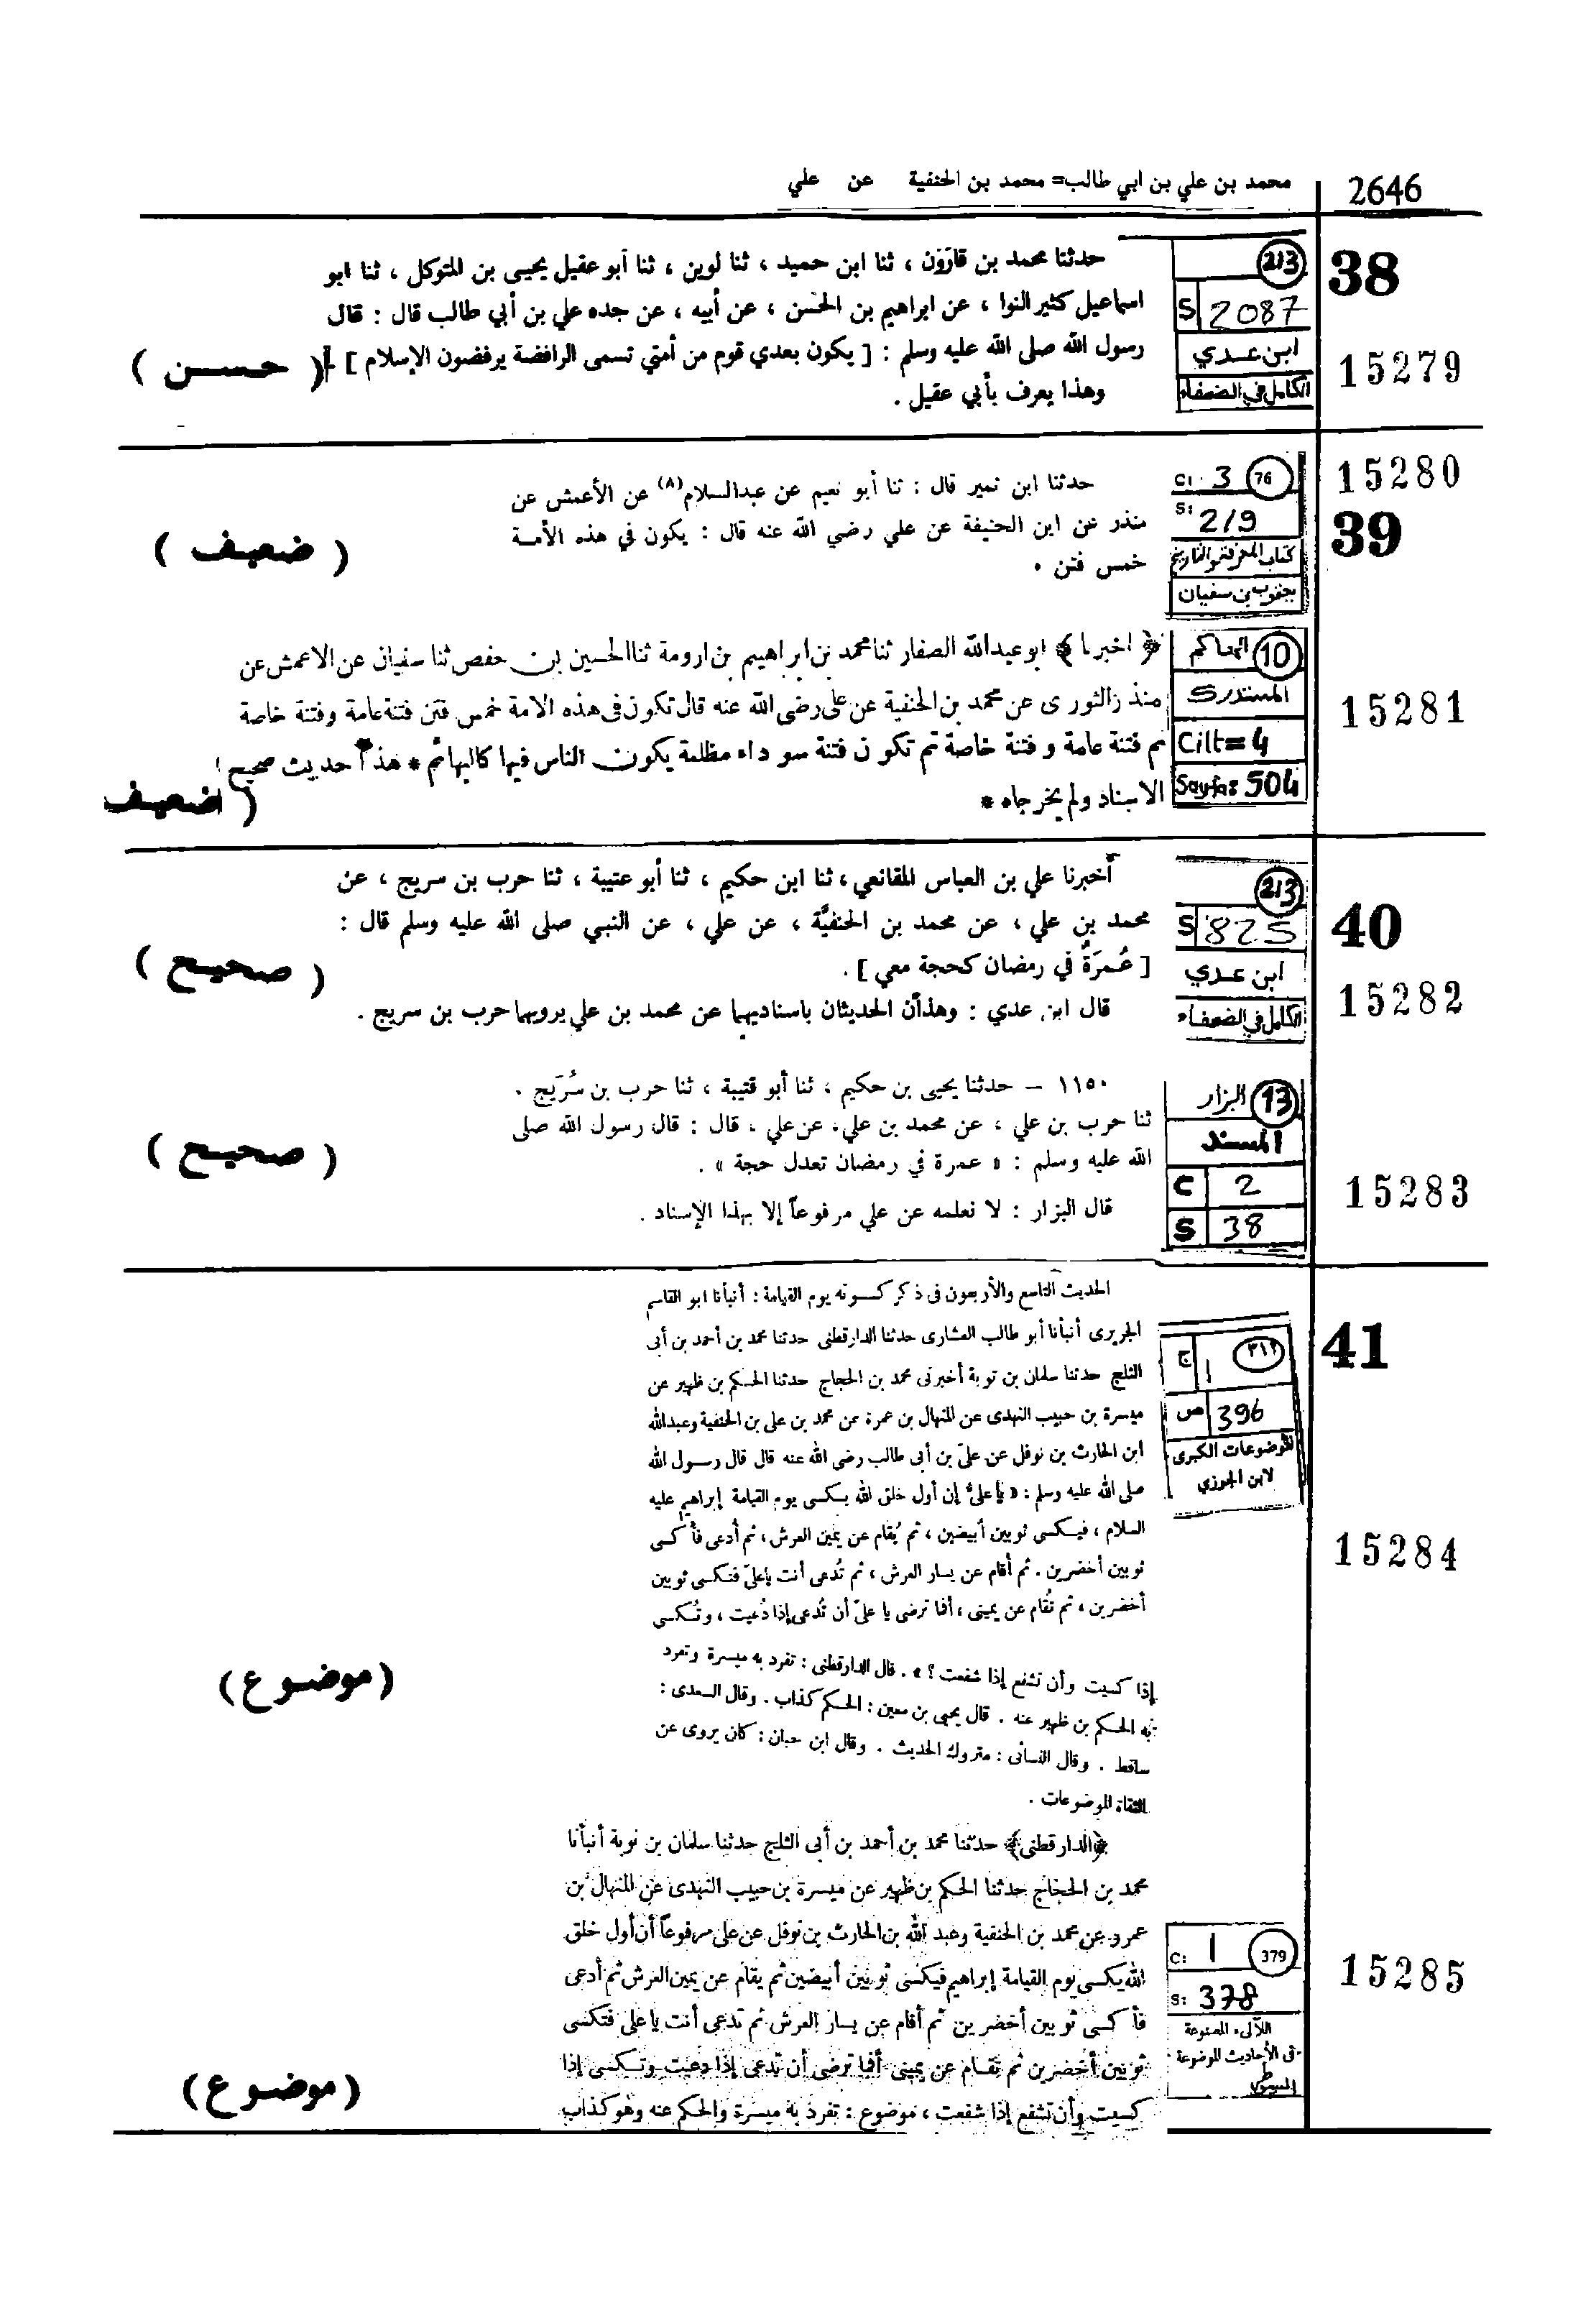 2646
محمد بن علي بن ابي طالب= محمد بن الحنفية عن علي
38
213
S 2087
ابن عدي
الكامل في الضعفاء
15279
حدثنا محمد بن قارَوْن ، ثنا ابن حميد ، ثنا لوين ، ثنا أبو عقيل يحيى بن المتوكل ، ثنا ابو
اسماعيل كثير النوا ، عن ابراهيم بن الحسن ، عن أبيه ، عن جده علي بن أبي طالب قال : قال
رسول الله صلى الله عليه وسلم : [ يكون بعدي قوم من أمتي تسمى الرافضة يرفضون الإسلام ] .
وهذا يعرف بأبي عقيل .
( حسن )
15280
39
C: 3 76
S: 219
كتاب المعرفة والتاريخ
يعقوب بن سفيان
حدثنا ابن نمير قال : ثنا أبو نعيم عن عبدالسلام(٨) عن الأعمش عن
منذر عن ابن الحنيفة عن علي رضي الله عنه قال : يكون في هذه الأمة
خمس فتن .
( ضعيف )
10 الحاكم
المستدرك
Cilt= 4
Sayfa: 504
15281
﴿ اخبرنا ﴾ ابو عبدالله الصفار ثنا محمد بن ابراهيم بن ارومة ثنا الحسين بن حفص ثنا سفيان عن الاعمش عن
منذر الثورى عن محمد بن الحنفية عن على رضى الله عنه قال تكون فى هذه الامة خمس فتن فتنة عامة وفتنة خاصة
ثم فتنة عامة وفتنة خاصة ثم تكون فتنة سوداء مظلمة يكون الناس فيها كالبهائم * هذا حديث صحيح
الاسناد ولم يخرجاه *
( ضعيف
40
213
S 825
ابن عدي
الكامل في الضعفاء
15282
أخبرنا علي بن العباس المقانعي ، ثنا ابن حكيم ، ثنا أبو عتيبة ، ثنا حرب بن سريج ، عن
محمد بن علي ، عن محمد بن الحنفيَّة ، عن علي ، عن النبي صلى الله عليه وسلم قال :
[ عُمرَةٌ في رمضان كحجة معي ] .
قال ابن عدي : وهذأن الحديثان باسناديهما عن محمد بن علي يرويهما حرب بن سريج .
( صحيح )
13 البزار
المسند
C 2
S 38
15283
١١٥٠ – حدثنا يحيى بن حكيم ، ثنا أبو قتيبة ، ثنا حرب بن سُرَيج .
ثنا حرب بن علي ، عن محمد بن علي ، عن علي ، قال : قال رسول الله صلى
الله عليه وسلم : « عمرة في رمضان تعدل حجة » .
قال البزار : لا نعلمه عن علي مرفوعاً إلا بهذا الإسناد .
( صحيح )
41
٣١٢
ج 1
ص 396
الموضوعات الكبرى
لابن الجوزي
15284
الحديث التاسع والأربعون فى ذكر كسوته يوم القيامة : أنبأنا ابو القاسم
الجريرى أنبأنا أبو طالب العشارى حدثنا الدارقطنى حدثنا محمد بن أحمد بن أبى
الثلج حدثنا سلمان بن توبة أخبرنى محمد بن الحجاج حدثنا الحكم بن ظهير عن
ميسرة بن حبيب النهدى عن المنهال بن عمرة عن محمد بن على بن الحنفية وعبدالله
ابن الحارث بن نوفل عن علىّ بن أبى طالب رضى الله عنه قال قال رسول الله
صلى الله عليه وسلم : « يا علىّ إن أول خلق الله يكسى يوم القيامة إبراهيم عليه
السلام ، فيكسى ثوبين أبيضين ، ثم يُقام عن يمين العرش ، ثم أدعى فأكسى
ثوبين أخضرين . ثم أقام عن يسار العرش ، ثم تُدعى أنت ياعلىّ فتكسى ثوبين
أخضرين ، ثم تُقام عن يمينى ، أفا ترضى يا علىّ أن تُدعى إذا دُعيت ، وتُكسى
إذا كسيت وأن تشفع إذا شفعت ؟ » . قال الدارقطنى : تفرد به ميسرة وتفرد
به الحكم بن ظهير عنه . قال يحيى بن معين : الحكم كذاب . وقال السعدى :
ساقط . وقال النسائى : متروك الحديث . وقال ابن حبان : كان يروى عن
الثقاة الموضوعات .
(موضوع)
C: 1 379
S: 378
اللآلىء المصنوعة
فى الأحاديث الموضوعة
السيوطى
15285
﴿الدارقطنى﴾ حدثنا محمد بن أحمد بن أبى الثلج حدثنا سلمان بن توبة أنبأنا
محمد بن الحجاج حدثنا الحكم بن ظهير عن ميسرة بن حبيب النهدى عن المنهال بن
عمرو عن محمد بن الحنفية وعبد الله بن الحارث بن نوفل عن على مرفوعاً أن أول خلق
الله يكسى يوم القيامة إبراهيم فيكسى ثوبين أبيضين ثم يقام عن يمين العرش ثم أدعى
فأكسى ثوبين أخضرين ثم أقام عن يسار العرش ثم تدعى أنت يا على فتكسى
ثوبين أخضرين ثم تقام عن يمينى أفما ترضى أن تدعى إذا دعيت وتكسى إذا
كسيت وأن تشفع إذا شفعت ، موضوع : تفرد به ميسرة والحكم عنه وهو كذاب
(موضوع)